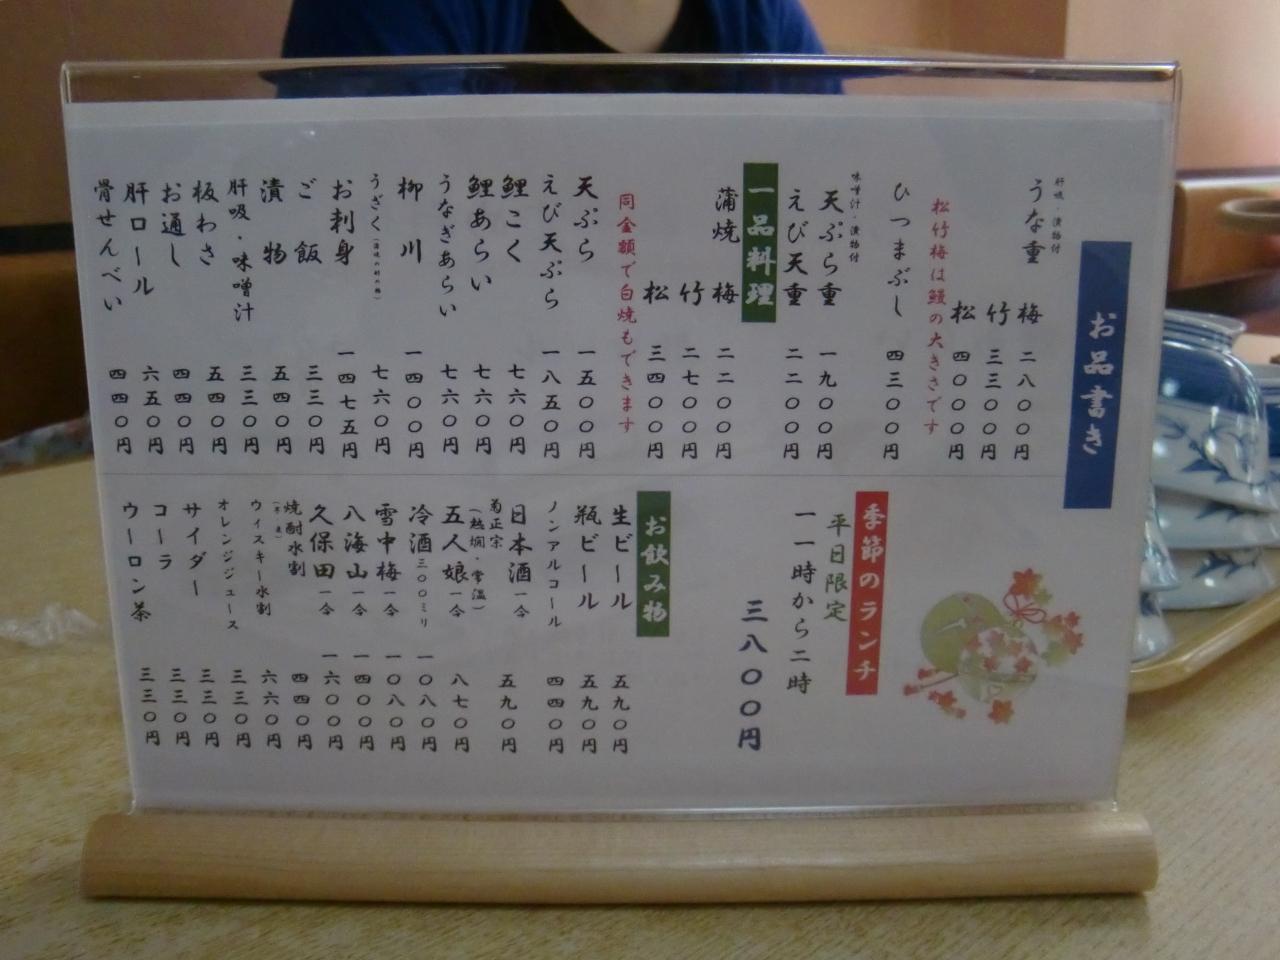 お品書き
肝吸・漬物付
うな重 梅 二八〇〇円
竹 三三〇〇円
松 四〇〇〇円
松竹梅は鰻の大きさです
ひつまぶし 四三〇〇円
味噌汁・漬物付
天ぷら重 一九〇〇円
えび天重 二二〇〇円
一品料理
蒲焼 梅 二二〇〇円
竹 二七〇〇円
松 三四〇〇円
同金額で白焼もできます
天ぷら 一五〇〇円
えび天ぷら 一八五〇円
鯉こく 七六〇円
鯉あらい 七六〇円
うなぎあらい 七六〇円
柳川 一四〇〇円
うざく 七六〇円
お刺身 一四七五円
ご飯 三三〇円
漬物 五四〇円
肝吸・味噌汁 三三〇円
板わさ 五四〇円
お通し 四四〇円
肝ロール 六五〇円
骨せんべい 四四〇円
季節のランチ
平日限定
一一時から二時
三八〇〇円
お飲み物
生ビール 五九〇円
瓶ビール 五九〇円
ノンアルコール 四四〇円
日本酒 一合 五九〇円
菊正宗
(熱燗・常温)
五人娘 一合 八七〇円
冷酒 三〇〇ミリ 一〇八〇円
雪中梅 一合 一〇八〇円
八海山 一合 一四〇〇円
久保田 一合 一六〇〇円
焼酎水割 四四〇円
ウイスキー水割 六六〇円
オレンジジュース 三三〇円
サイダー 三三〇円
コーラ 三三〇円
ウーロン茶 三三〇円